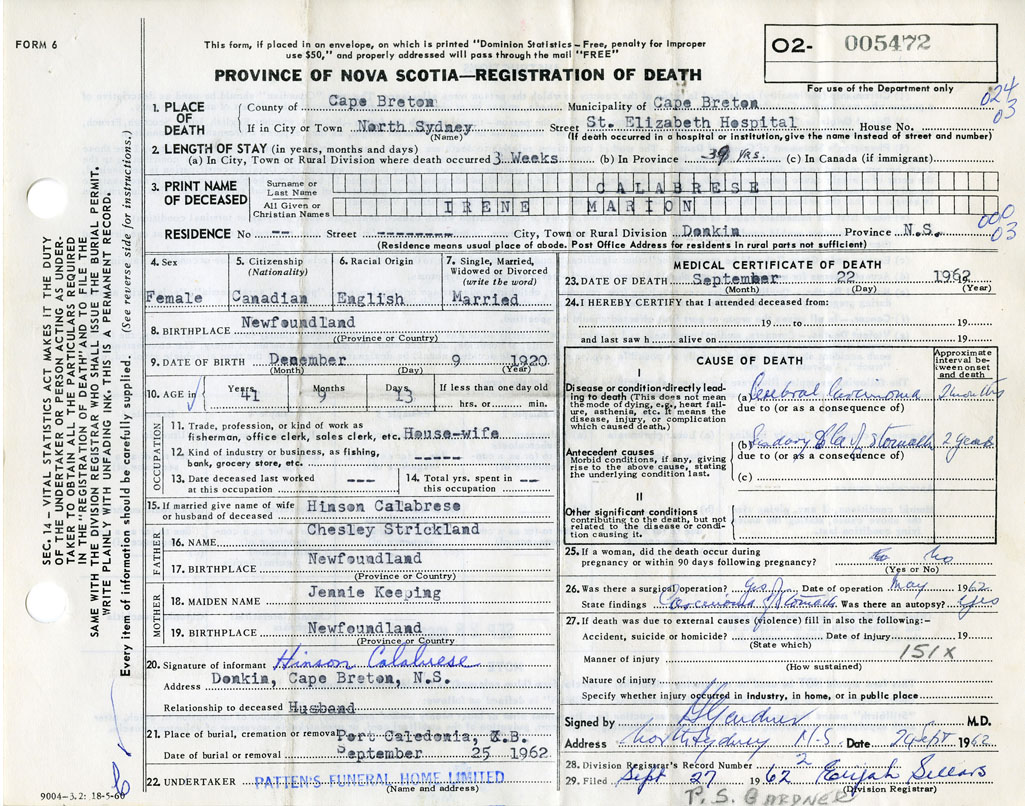 FORM 6
This form, if placed in an envelope, on which is printed "Dominion Statistics – Free, penalty for improper
use $50," and properly addressed will pass through the mail "FREE"
PROVINCE OF NOVA SCOTIA—REGISTRATION OF DEATH
O2- 005472
For use of the Department only
024
03
SEC. 14 – VITAL STATISTICS ACT MAKES IT THE DUTY
OF THE UNDERTAKER OR PERSON ACTING AS UNDER-
TAKER TO OBTAIN ALL THE PARTICULARS REQUIRED
IN THE "REGISTRATION OF DEATH" AND TO FILE THE
SAME WITH THE DIVISION REGISTRAR WHO SHALL ISSUE THE BURIAL PERMIT.
WRITE PLAINLY WITH UNFADING INK. THIS IS A PERMANENT RECORD.
Every item of information should be carefully supplied. (See reverse side for instructions.)
1. PLACE OF DEATH
County of Cape Breton Municipality of Cape Breton
If in City or Town North Sydney Street St. Elizabeth Hospital House No.
(Name) (If death occurred in a hospital or institution, give the name instead of street and number)
2. LENGTH OF STAY (in years, months and days)
(a) In City, Town or Rural Division where death occurred 3 Weeks (b) In Province 39 yrs. (c) In Canada (if immigrant)
3. PRINT NAME OF DECEASED
Surname or Last Name CALABRESE
All Given or Christian Names IRENE MARION
000
03
RESIDENCE No -- Street -------- City, Town or Rural Division Donkin Province N.S.
(Residence means usual place of abode. Post Office Address for residents in rural parts not sufficient)
4. Sex
Female
5. Citizenship (Nationality)
Canadian
6. Racial Origin
English
7. Single, Married, Widowed or Divorced (write the word)
Married
8. BIRTHPLACE Newfoundland
((Province or Country)
9. DATE OF BIRTH Denember 9 1920
(Month) (Day) (Year)
10. AGE in Years 41 Months 9 Days 13 If less than one day old hrs. or min.
OCCUPATION
11. Trade, profession, or kind of work as
fisherman, office clerk, sales clerk, etc. House-wife
12. Kind of industry or business, as fishing,
bank, grocery store, etc. -----
13. Date deceased last worked at this occupation ---
14. Total yrs. spent in this occupation --
15. If married give name of wife or husband of deceased Hinson Calabrese
FATHER
16. NAME Chesley Strickland
17. BIRTHPLACE Newfoundland
(Province or Country)
MOTHER
18. MAIDEN NAME Jennie Keeping
19. BIRTHPLACE Newfoundland
(Province or Country
20. Signature of informant Hinson Calabrese
Address Donkin, Cape Breton, N.S.
Relationship to deceased Husband
21. Place of burial, cremation or removal Port Caledonia, C.B.
Date of burial or removal September 25 1962
22. UNDERTAKER PATTEN'S FUNERAL HOME LIMITED
(Name and address)
9004-3.2: 18-5-60
MEDICAL CERTIFICATE OF DEATH
23. DATE OF DEATH September 22 1962
(Month) (Day) (Year)
24. I HEREBY CERTIFY that I attended deceased from:
19 to 19
and last saw h alive on 19
CAUSE OF DEATH
Approximate interval between onset and death
I
Disease or condition directly lead-
ing to death (This does not mean
the mode of dying, e.g., heart fail-
ure, asthenia, etc. It means the
disease, injury, or complication
which caused death.)
(a) Cerebral Carcinoma 2 months
due to (or as a consequence of)
Antecedent causes
Morbid conditions, if any, giving
rise to the above cause, stating
the underlying condition last.
(b) of Stomach 2 years
due to (or as a consequence of)
(c)
II
Other significant conditions
contributing to the death, but not
related to the disease or condi-
tion causing it.
25. If a woman, did the death occur during
pregnancy or within 90 days following pregnancy? No
(Yes or No)
26. Was there a surgical operation? Yes Date of operation May 1962
State findings Carcinoma of Stomach Was there an autopsy? Yes
27. If death was due to external causes (violence) fill in also the following:–
Accident, suicide or homicide? Date of injury 19
(State which)
151X
Manner of injury
(How sustained)
Nature of injury
Specify whether injury occurred in industry, in home, or in public place
Signed by Gardner M.D.
Address North Sydney N.S. Date Sept 1962
28. Division Registrar's Record Number 2
29. Filed Sept 27 1962 Elijah Sellars
(Division Registrar)
P. S. GARDNER